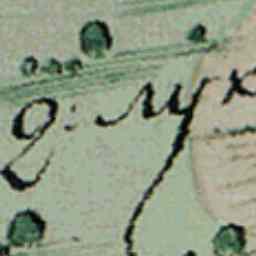 д: лух